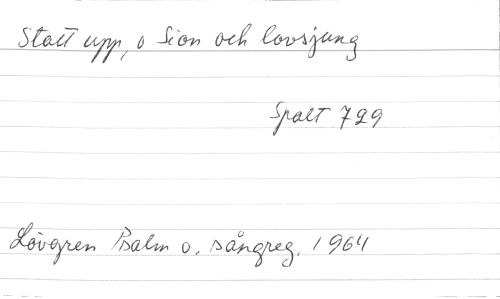 Statt upp, o Sion och lovsjung
Spalt 729
Lövgren Psalm o. sångreg. 1964